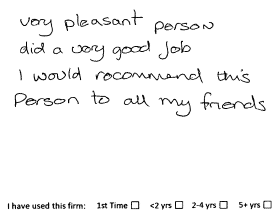 very pleasant person
did a very good Job
I would recommend this
Person to all my friends
I have used this firm: 1st Time ☐ <2 yrs ☐ 2-4 yrs ☐ 5+ yrs ☐